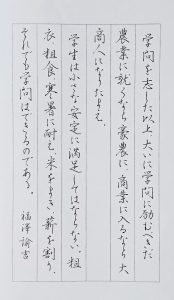 学問を志した以上、大いに学問に励むべきだ
農業に就くなら豪農に、商業に入るなら大
商人になりたまえ。
学生は小さな安定に満足してはならない。粗
衣粗食、寒暑に耐え、米をまき、薪を割り、
それでも学問はできるのである。
福澤諭吉